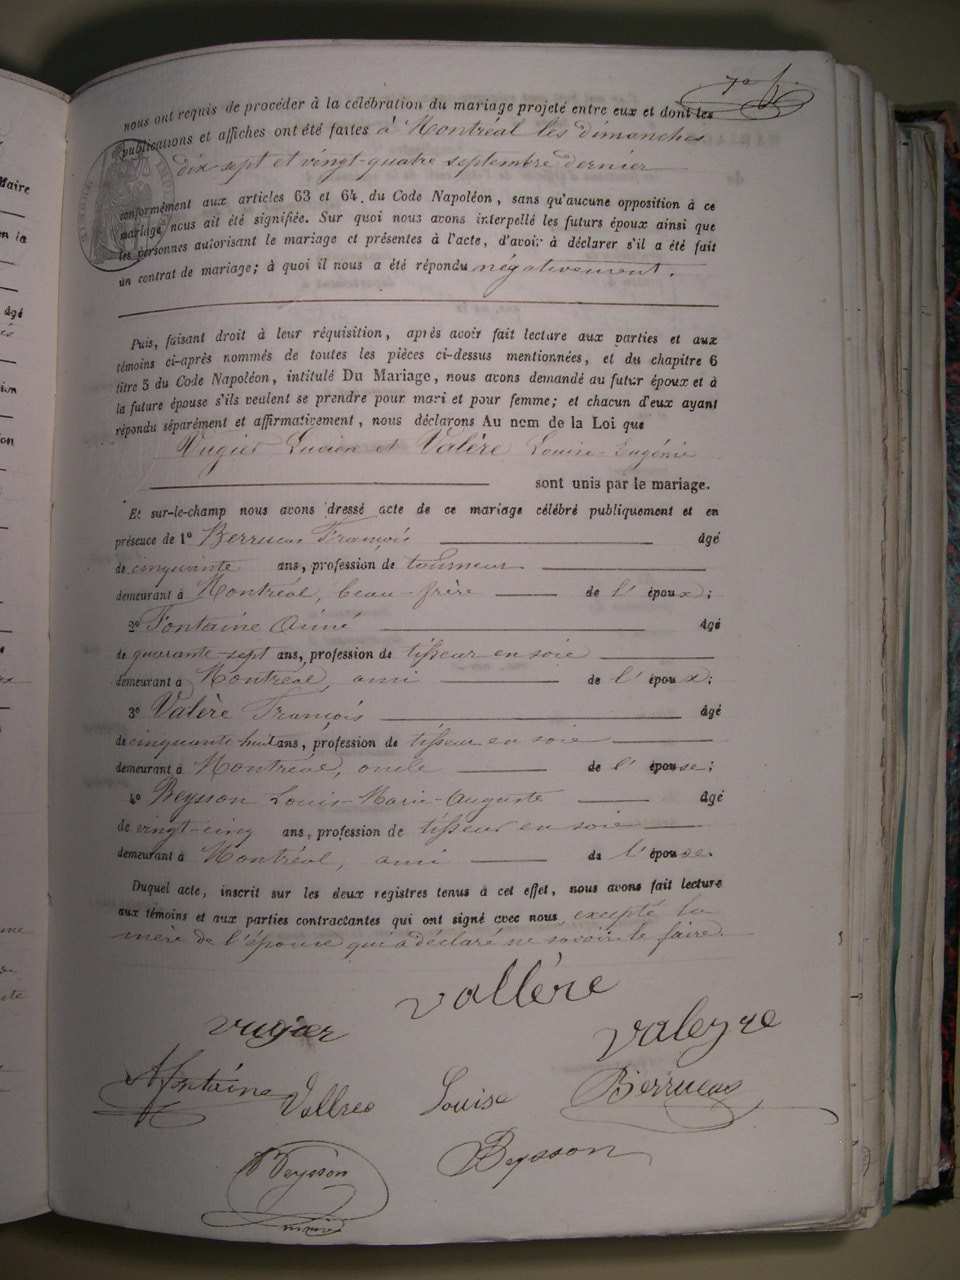 nous ont requis de procéder à la célébration du mariage projeté entre eux et dont les
publications et affiches ont été faites à Montréal les dimanches
dix-sept et vingt-quatre septembre dernier
conformément aux articles 63 et 64 du Code Napoléon, sans qu'aucune opposition à ce
mariage nous ait été signifiée. Sur quoi nous avons interpellé les futurs époux ainsi que
les personnes autorisant le mariage et présentes à l'acte, d'avoir à déclarer s'il a été fait
un contrat de mariage; à quoi il nous a été répondu négativement.
Puis, faisant droit à leur réquisition, après avoir fait lecture aux parties et aux
témoins ci-après nommés de toutes les pièces ci-dessus mentionnées, et du chapitre 6
titre 5 du Code Napoléon, intitulé Du Mariage, nous avons demandé au futur époux et à
la future épouse s'ils veulent se prendre pour mari et pour femme; et chacun d'eux ayant
répondu séparément et affirmativement, nous déclarons Au nom de la Loi que
Vugier Lucien et Valère Louise-Eugénie
sont unis par le mariage.
Et sur-le-champ nous avons dressé acte de ce mariage célébré publiquement et en
présence de 1º Berrucas François âgé
de cinquante ans, profession de tourneur
demeurant à Montréal, beau-frère de l'époux;
2º Fontaine Aimé âgé
de quarante-sept ans, profession de tisseur en soie
demeurant à Montréal, ami de l'époux;
3º Valère François âgé
de cinquante huit ans, profession de tisseur en soie
demeurant à Montréal, oncle de l'épouse;
4º Beysson Louis-Marie-Auguste âgé
de vingt-cinq ans, profession de tisseur en soie
demeurant à Montréal, ami de l'épouse.
Duquel acte, inscrit sur les deux registres tenus à cet effet, nous avons fait lecture
aux témoins et aux parties contractantes qui ont signé avec nous, excepté la
mère de l'épouse qui a déclaré ne savoir le faire.
Vallère
Vugier Valeyre
AFontaine Vallree Louise Berrucas
Beysson
Beysson